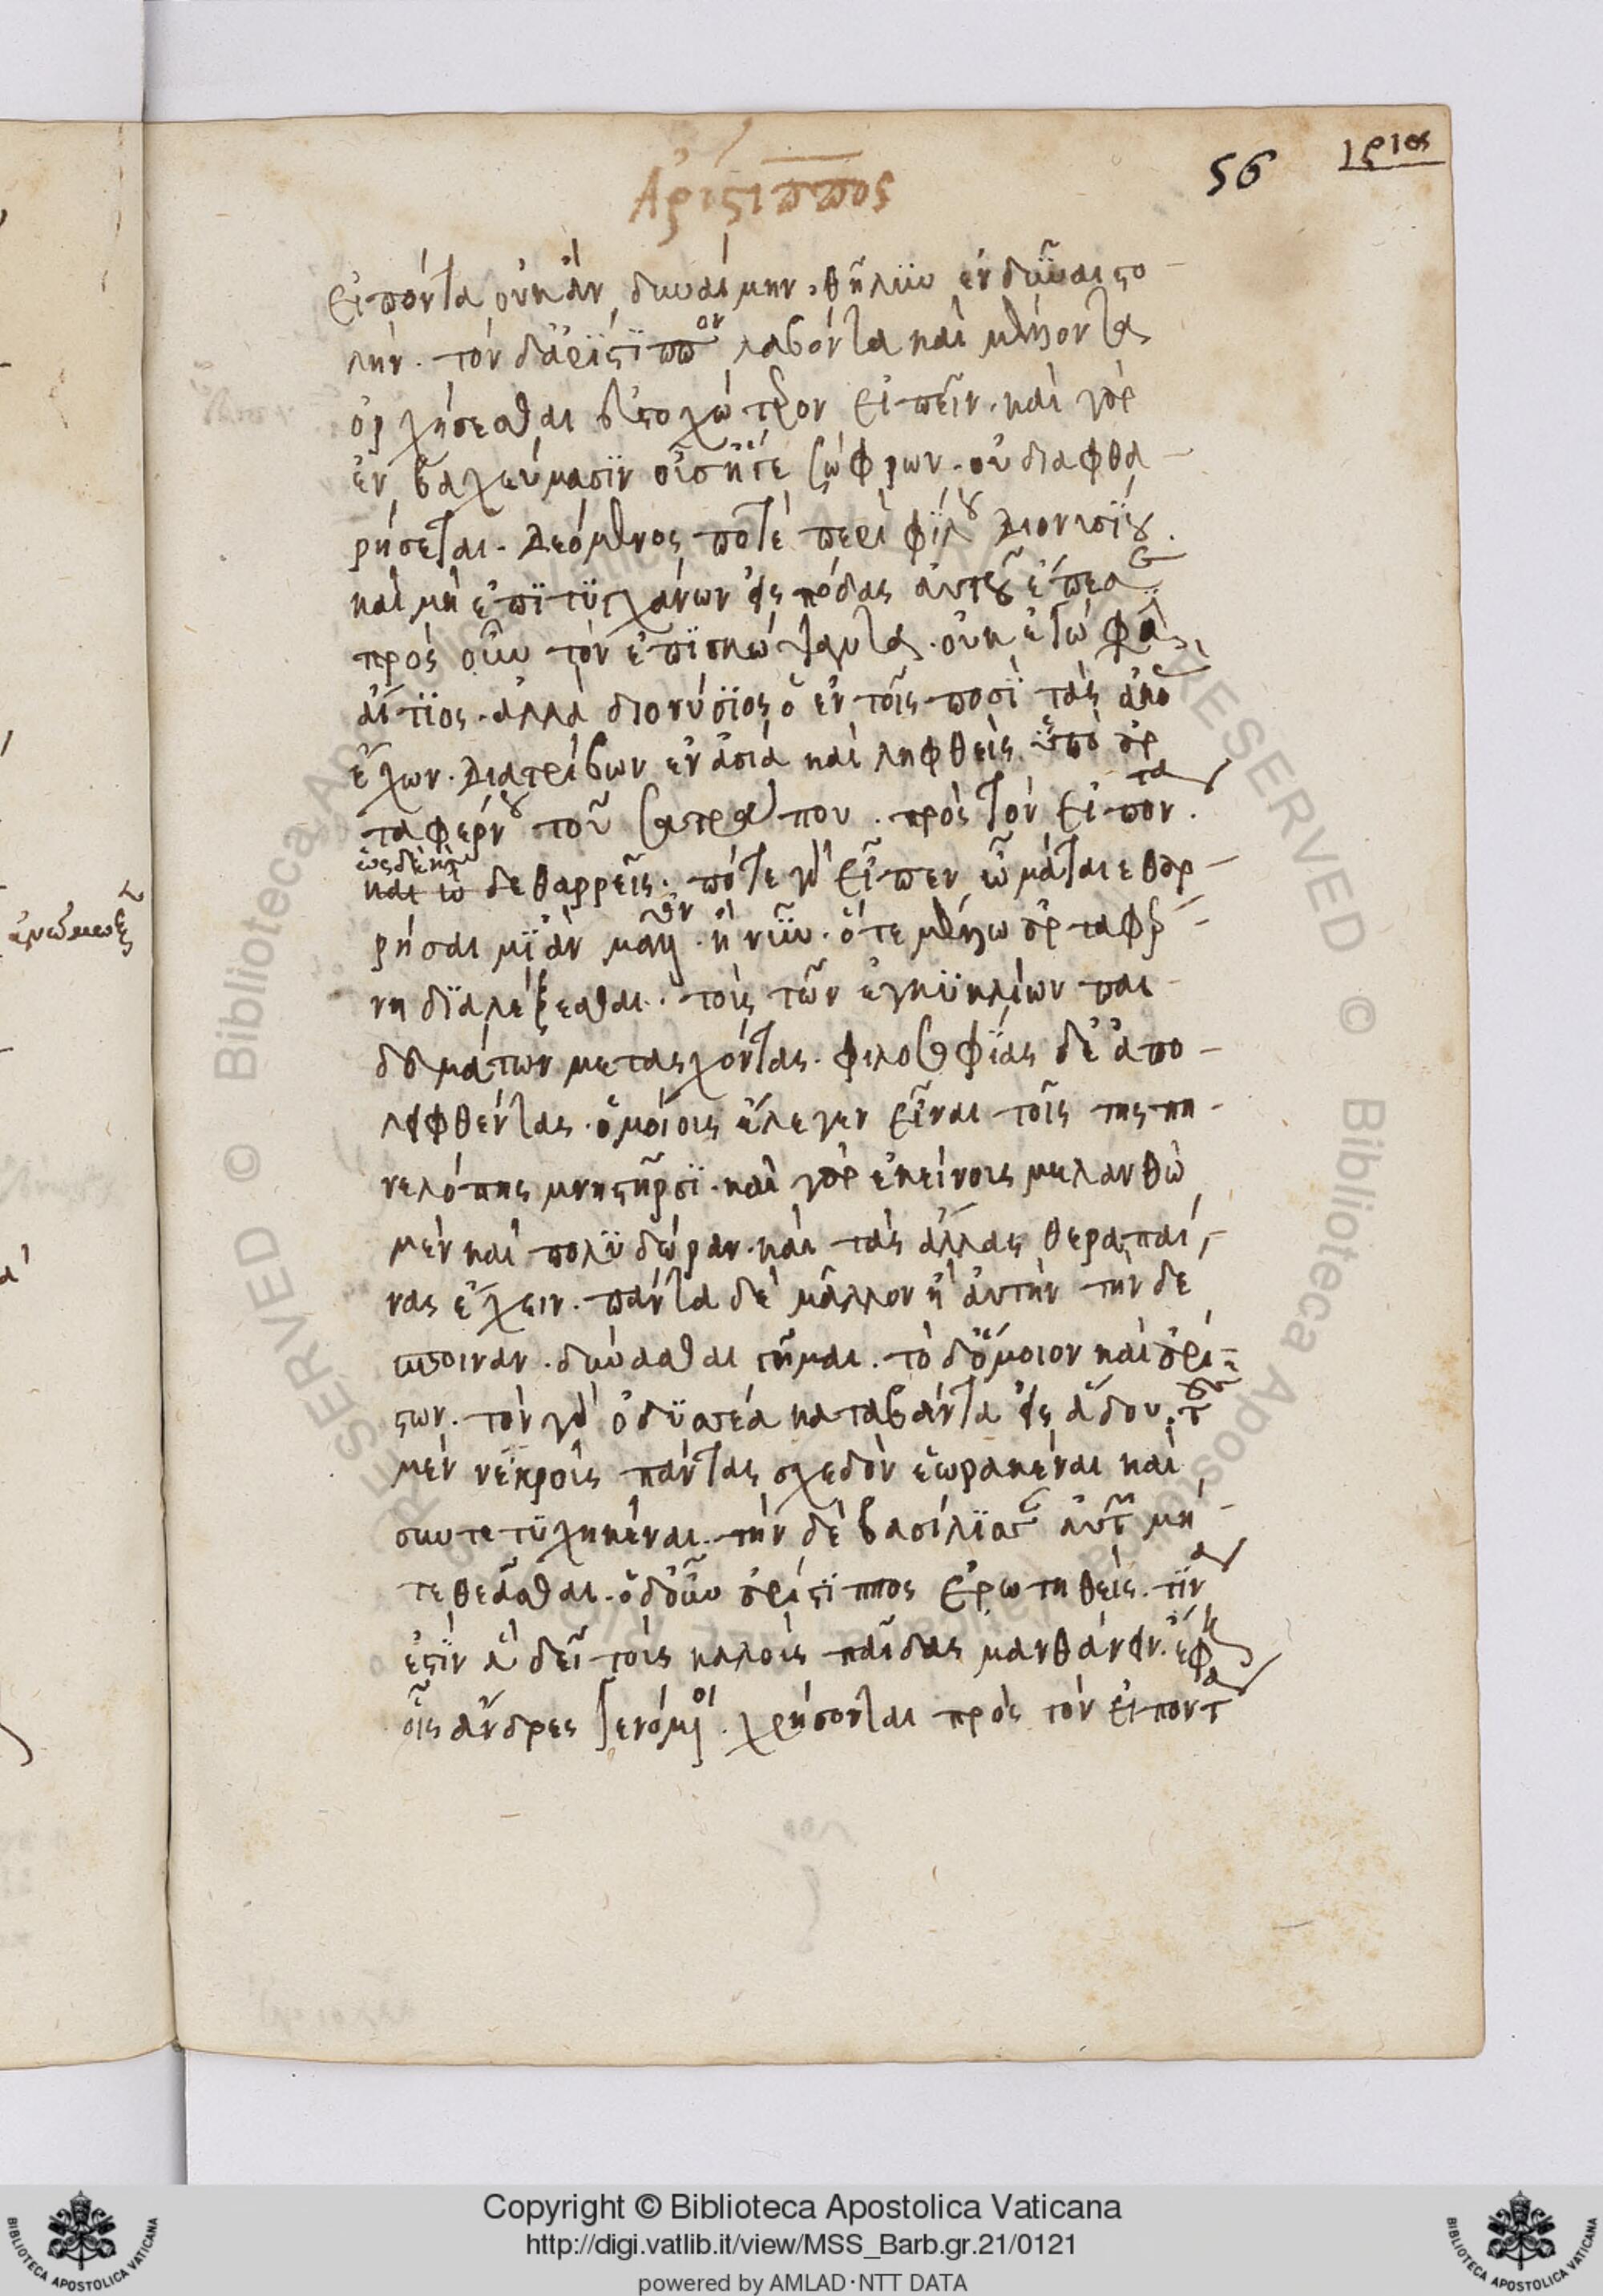 Ἀρίστιππος
56
εἰπόντα οὐκ ἂν δυναίμην θῆλυν ἐνδῦναι στο-
λήν. τὸν δ' ἀρίστιππον λαβόντα καὶ μέλλοντα
ὀρχήσεσθαι εὐστοχώτερον εἰπεῖν. καὶ γὰρ
ἐν βακχεύμασϊν οὖσ' ἥγε σώφρων. οὐ διαφθα-
ρήσεται. Δεόμενος ποτὲ περὶ φίλου Διονυσίου.
καὶ μὴ ἐπιτυγχάνων εἰς πόδας αὐτοῦ ἔπεσε
πρὸς οὖν τὸν ἐπισκώψαντα. οὐκ ἐγώ φησι
αἴτιος. ἀλλὰ διονύσιος ὁ ἐν τοῖς ποσὶ τὰς ἀκο
ἔχων. Διατρίβων ἐν ἀσία καὶ ληφθεὶς ὑπὸ ἀρ
ταφέρνου τοῦ σατράπου. πρὸς τὸν εἰπόντα.
καὶ ὧδε θαρρεῖς. πότε γὰρ εἶπεν ὦ μάταιε θαρ-
ρήσαιμι ἂν μᾶλλον. ἢ νῦν. ὅτε μέλλω ἀρταφέρ-
νη διαλέξεσθαι. τοὺς τῶν ἐγκυκλίων παι-
δευμάτων μετασχόντας. φιλοσοφίας δὲ ἀπο-
λειφθέντας. ὁμοίους ἔλεγεν εἶναι τοῖς τῆς πη-
νελόπης μνηστῆρσι. καὶ γὰρ ἐκείνους μελανθὼ
μὲν καὶ πολυδώραν. καὶ τὰς ἄλλας θεραπαί-
νας ἔχειν. πάντα δὲ μᾶλλον ἢ αὐτὴν τὴν δέ
σποιναν. δύνασθαι γῆμαι. τὸ δ' ὅμοιον καὶ ἀρί-
στων. τὸν γὰρ ὀδυσσέα καταβάντα εἰς ἅδου. τοὺς
μὲν νεκροὺς πάντας σχεδὸν ἑωρακέναι καὶ
συντετυχηκέναι. τὴν δὲ βασίλισσαν αὐτὴν μὴ
τεθεᾶσθαι. ὁ δ' οὖν ἀρίστιππος ἐρωτηθεὶς. τίνα
ἐστὶν ἃ δεῖ τοὺς καλοὺς παῖδας μανθάνειν. ἔφη
οἷς ἄνδρες γενόμενοι. χρήσονται πρὸς τὸν εἰπόντα
Copyright © Biblioteca Apostolica Vaticana
http://digi.vatlib.it/view/MSS_Barb.gr.21/0121
powered by AMLAD·NTT DATA